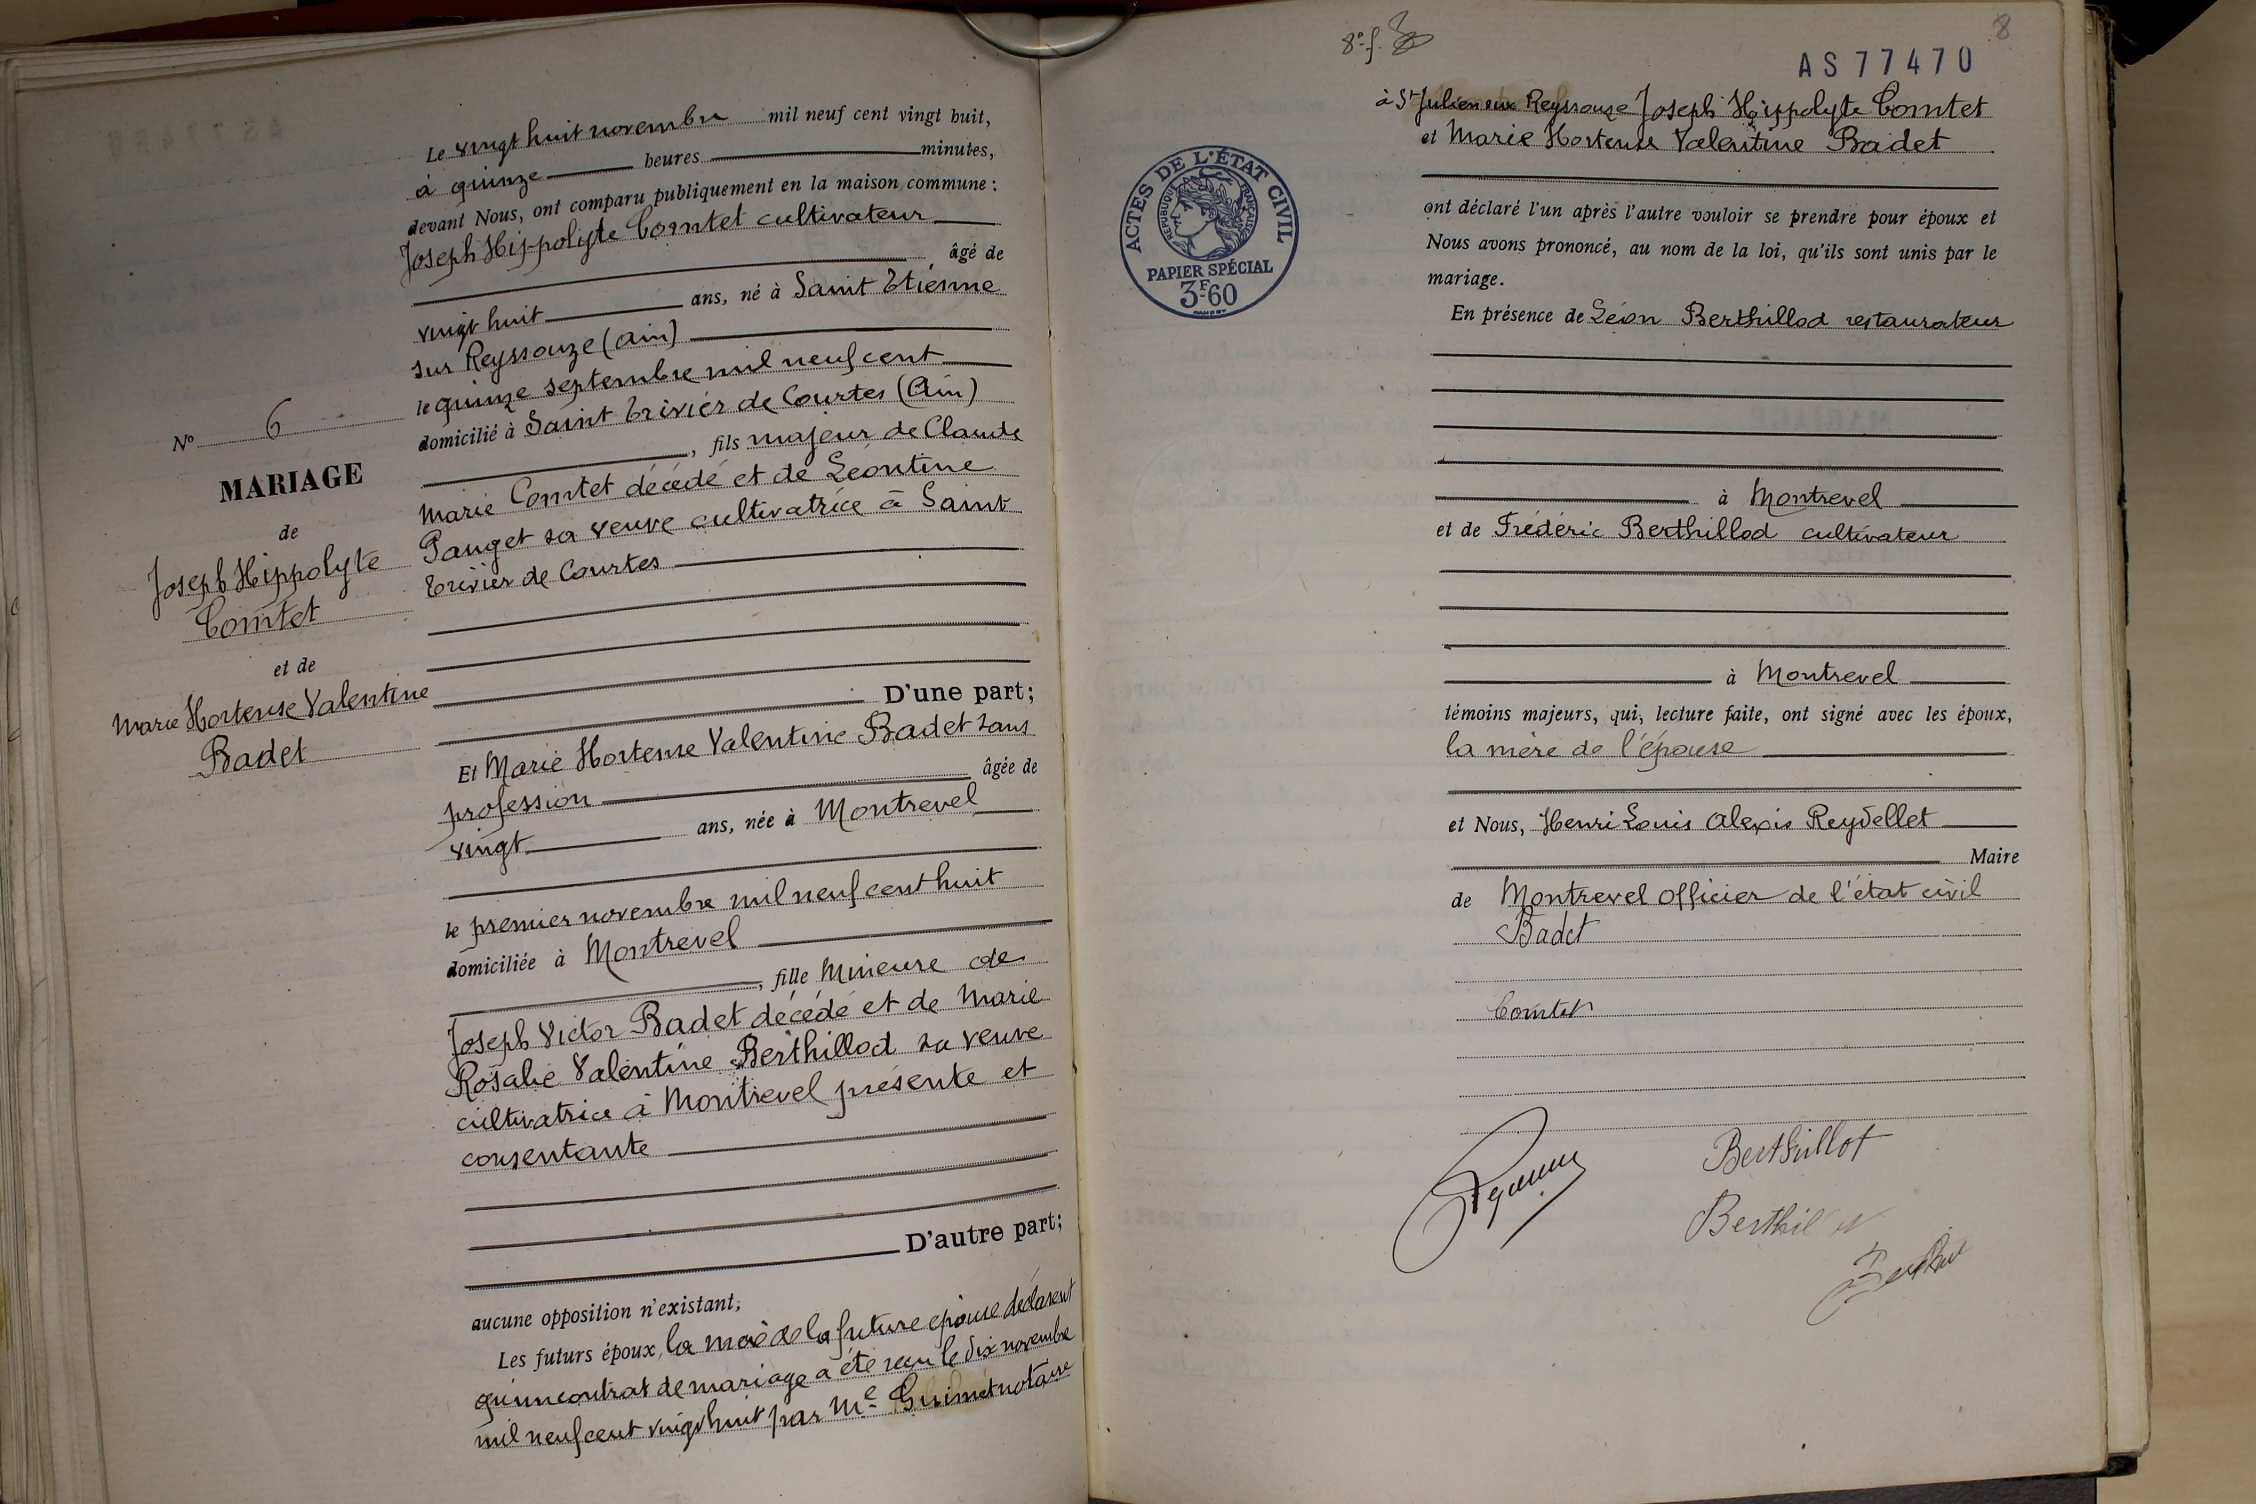 N° 6
MARIAGE
de
Joseph Hippolyte
Comtet
et de
Marie Hortense Valentine
Badet
Le vingt huit novembre mil neuf cent vingt huit,
à quinze heures minutes,
devant Nous, ont comparu publiquement en la maison commune :
Joseph Hippolyte Comtet cultivateur
âgé de
vingt huit ans, né à Saint Etienne
sur Reyssouze (Ain)
le quinze septembre mil neuf cent
domicilié à Saint Trivier de Courtes (Ain)
, fils majeur de Claude
Marie Comtet décédé et de Léontine
Pauget sa veuve cultivatrice à Saint
Trivier de Courtes
D'une part;
Et Marie Hortense Valentine Badet sans
profession âgée de
vingt ans, née à Montrevel
le premier novembre mil neuf cent huit
domiciliée à Montrevel
, fille Mineure de
Joseph Victor Badet décédé et de Marie
Rosalie Valentine Berthillod sa veuve
cultivatrice à Montrevel présente et
consentante
D'autre part;
aucune opposition n'existant;
Les futurs époux, la mère de la future épouse déclarent
qu'un contrat de mariage a été reçu le dix novembre
mil neuf cent vingt huit par Me Guimet notaire
8e f.
8
AS 77470
ACTES DE L'ÉTAT CIVIL
RÉPUBLIQUE FRANÇAISE
PAPIER SPÉCIAL
3F60
à St Julien sur Reyssouze Joseph Hippolyte Comtet
et Marie Hortense Valentine Badet
ont déclaré l'un après l'autre vouloir se prendre pour époux et
Nous avons prononcé, au nom de la loi, qu'ils sont unis par le
mariage.
En présence de Léon Berthillod restaurateur
à Montrevel
et de Frédéric Berthillod cultivateur
à Montrevel
témoins majeurs, qui, lecture faite, ont signé avec les époux,
la mère de l'épouse
et Nous, Henri Louis Alexis Reydellet
Maire
de Montrevel officier de l'état civil
Badet
Comtet
Berthillot